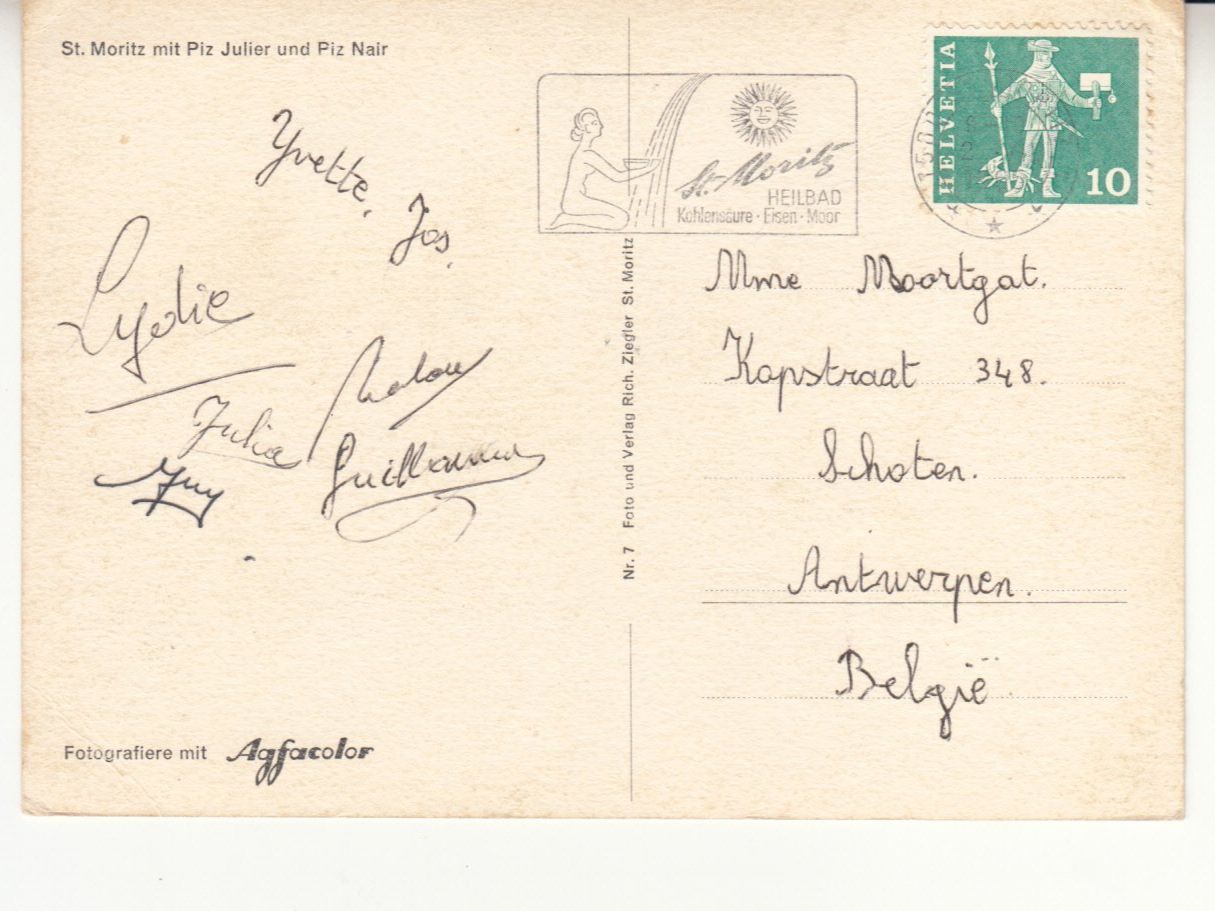 St. Moritz mit Piz Julier und Piz Nair
Yvette, Jos,
Lydie
Julia
Guy
Nr. 7 Foto und Verlag Rich. Ziegler St. Moritz
Fotografiere mit Agfacolor
St. Moritz
HEILBAD
Kohlensäure · Eisen · Moor
HELVETIA
10
Mme Moortgat.
Kapstraat 348.
Schoten.
Antwerpen.
België